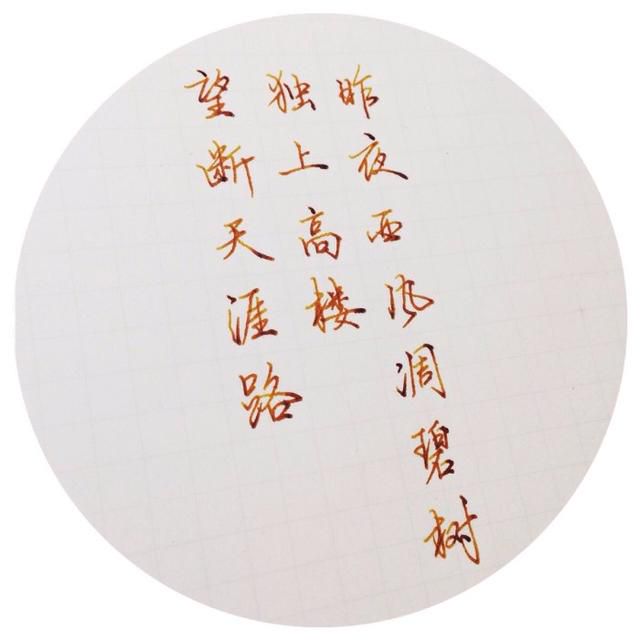 昨夜西风凋碧树
独上高楼
望断天涯路